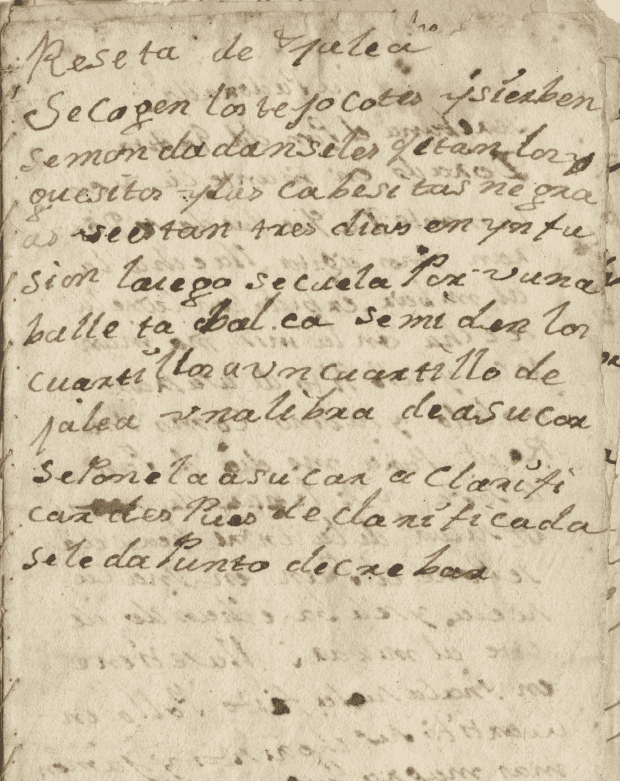 Reseta de Jalea
Se cogen los tejocotes y sierben
semondadanseles qitan los
guesitos y las cabesitas negra
as se estan tres dias en ynfu
sion luego se cuela Por vuna
balleta bal.ca semiden los
cuartillos a vn cuartillo de
jalea vna libra de asucar
sePone la asucar a Clarifi
car des Pues de clarificada
sele da Punto de crebar